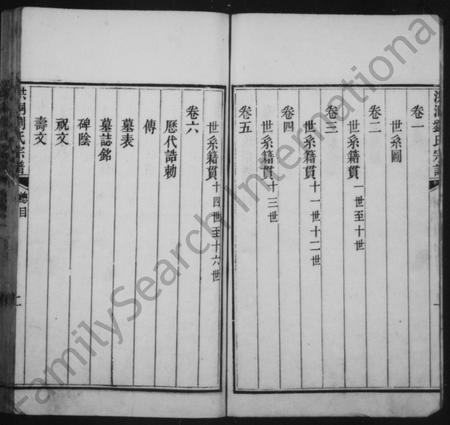 洪洞劉氏宗譜
卷一
世系圖
卷二
世系籍貫一世至十世
卷三
世系籍貫十一世十二世
卷四
世系籍貫十三世
卷五
世系籍貫十四世至十六世
卷六
歷代誥勅
傳
墓表
墓誌銘
碑陰
祝文
壽文
洪洞劉氏宗譜
總目
FamilySearch International